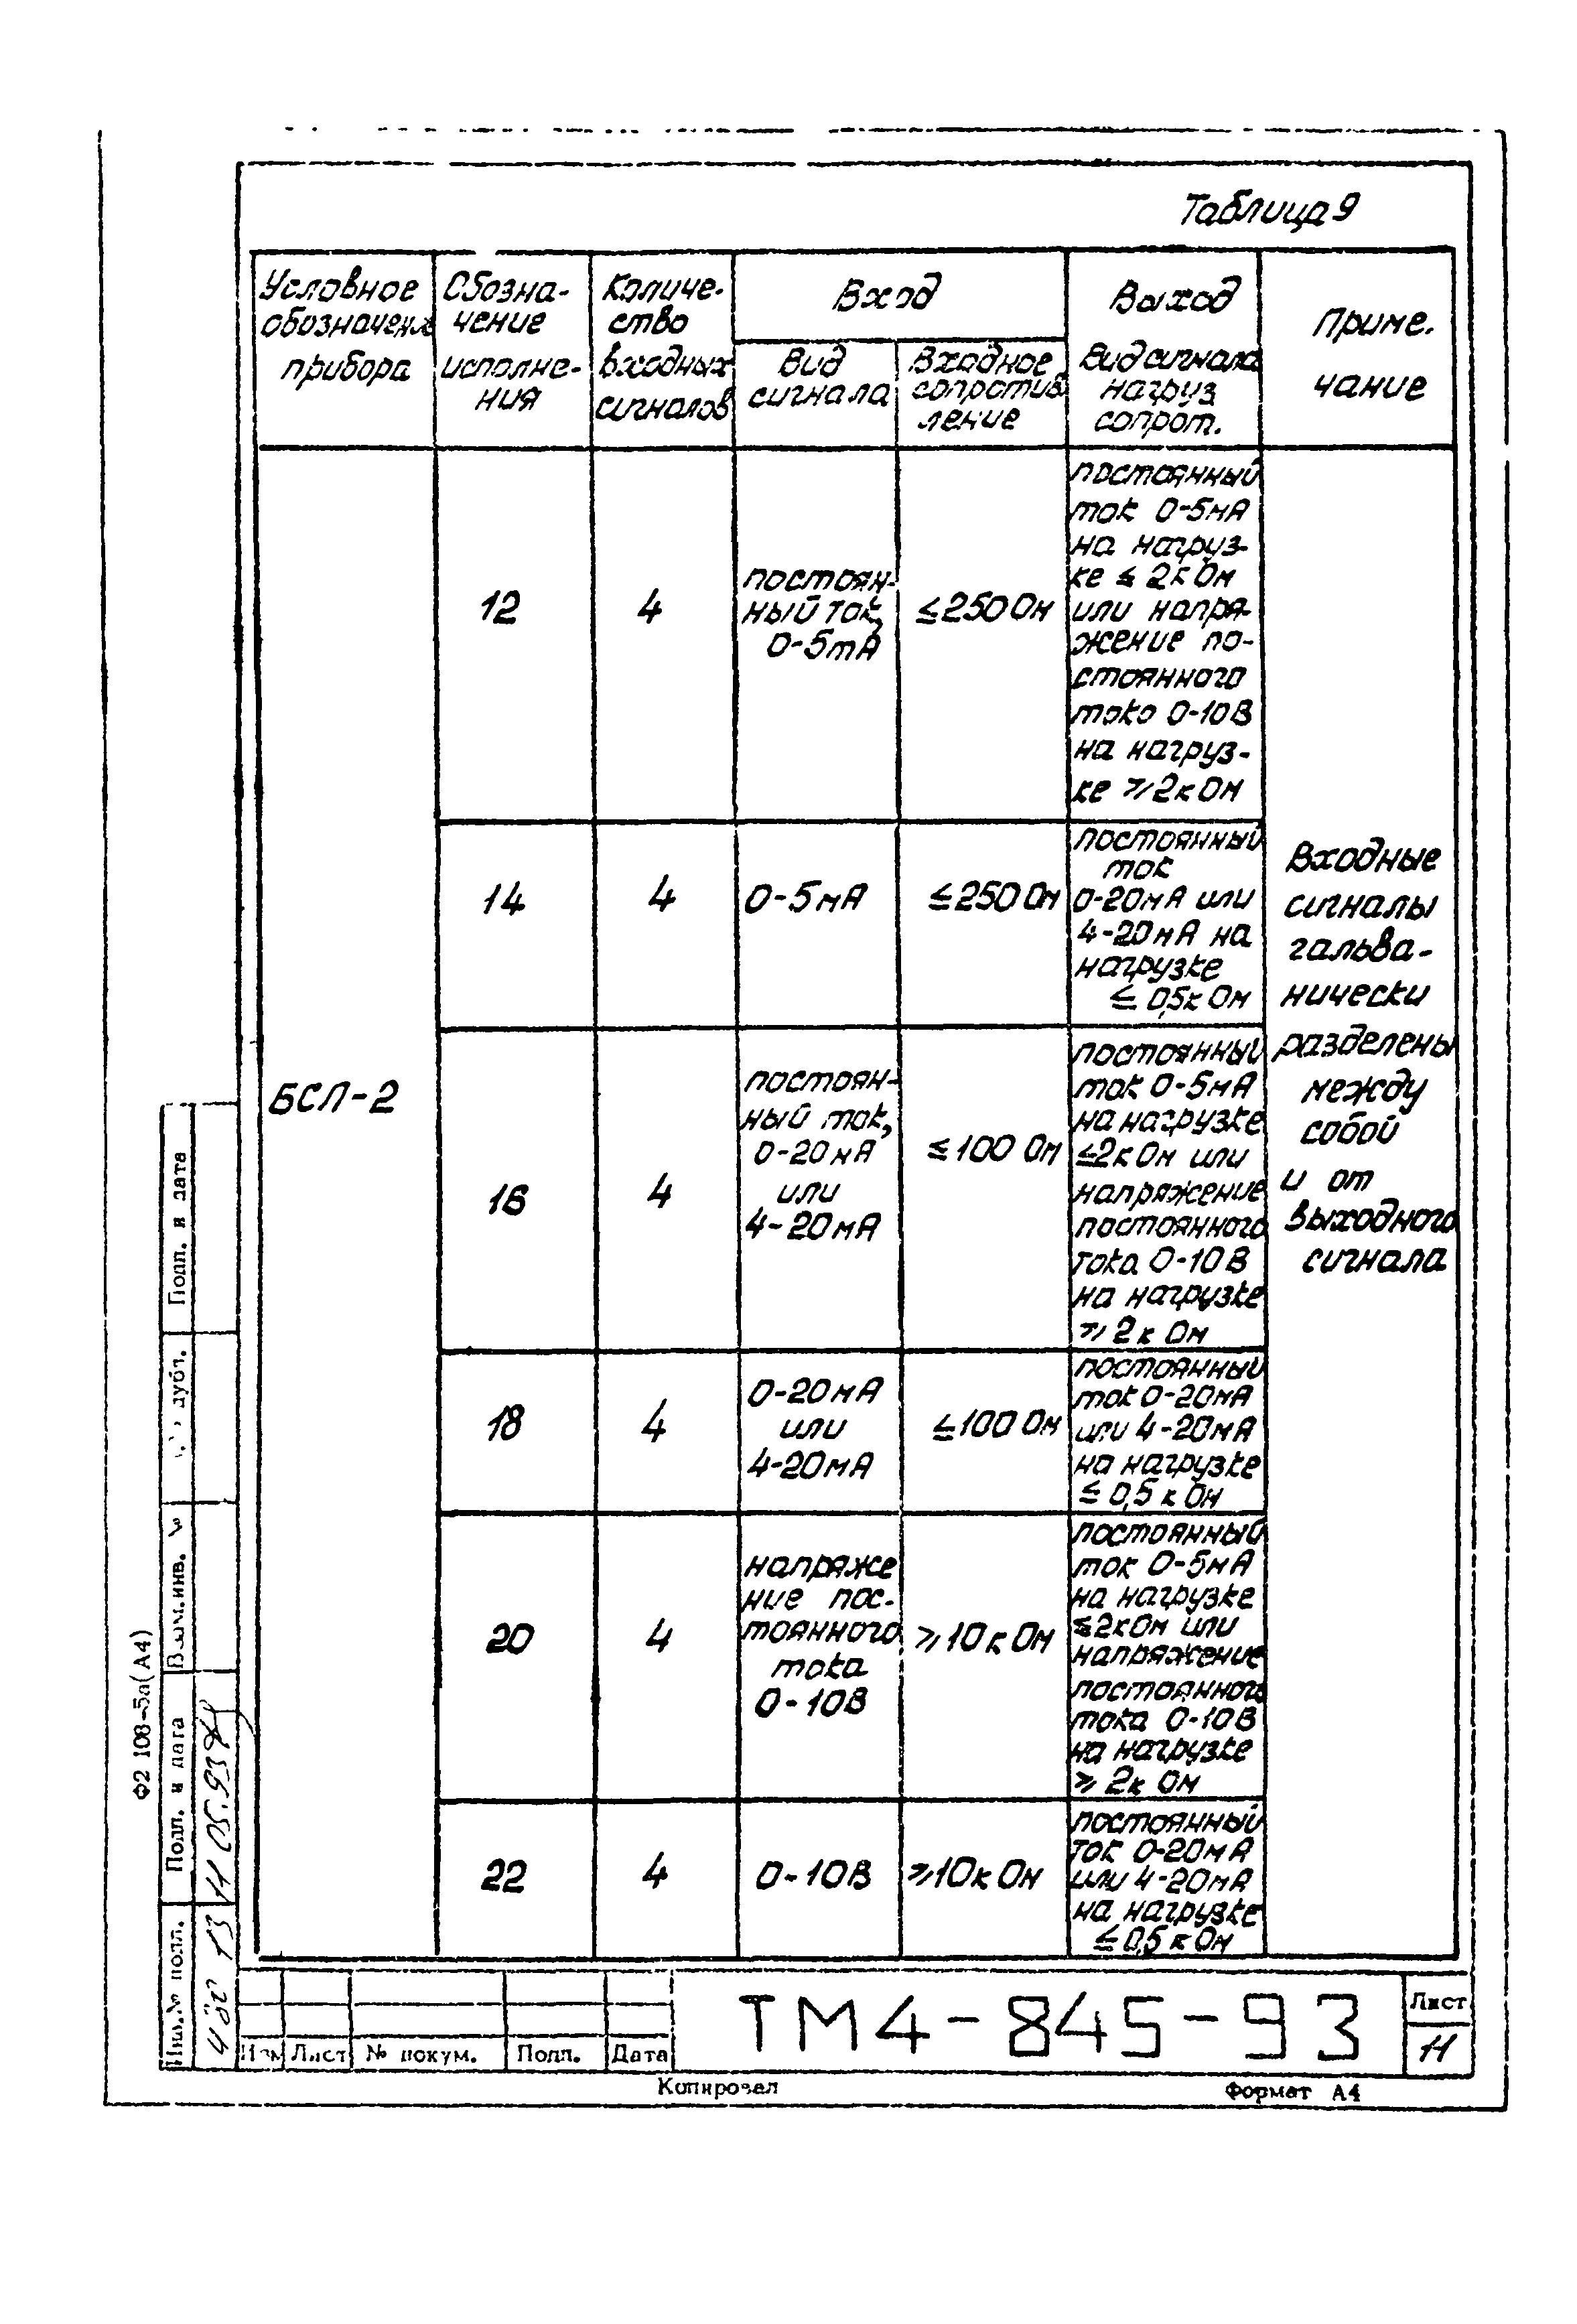 Таблица 9
Условное
обозначение
прибора
Обозна-
чение
исполне-
ния
Количе-
ство
входных
сигналов
Вход
Вид
сигнала
Входное
сопротив
ление
Выход
Вид сигнала
нагруз
сопрот.
Приме.
чание
БСЛ-2
12
4
постоян-
ный ток,
0-5mA
≤250 Ом
постоянный
ток 0-5мА
на нагруз-
ке ≤ 2к Ом
или напря-
жение по-
стоянного
токо 0-10В
на нагруз-
ке ⩾2к Ом
14
4
0-5мА
≤250 Ом
постоянный
ток
0-20мА или
4-20мА на
нагрузке
≤ 0,5к Ом
16
4
постоян-
ный ток,
0-20мА
или
4-20мА
≤100 Ом
постоянный
ток 0-5мА
на нагрузке
≤2к Ом или
напряжение
постоянного
тока 0-10В
на нагрузке
⩾ 2к Ом
18
4
0-20мА
или
4-20мА
≤100 Ом
постоянный
ток 0-20мА
или 4-20мА
на нагрузке
≤ 0,5 к Ом
20
4
напряже
ние пос-
тоянного
тока
0-10В
⩾10к Ом
постоянный
ток 0-5мА
на нагрузке
≤2кОм или
напряжение
постоянного
тока 0-10В
на нагрузке
⩾ 2к Ом
22
4
0-10В
⩾10к Ом
постоянный
ток 0-20мА
или 4-20мА
на нагрузке
≤ 0,5 к Ом
Входные
сигналы
гальва-
нически
разделены
между
собой
и от
выходного
сигнала
Ф2 108-5а(А4)
Подп. и дата
дубл.
Взам.инв. №
Подп. и дата
11 05.93г
Инв.№ подл.
Изм Лист № докум. Подп. Дата
ТМ4-845-93
Лист
11
Копировал
Формат А4